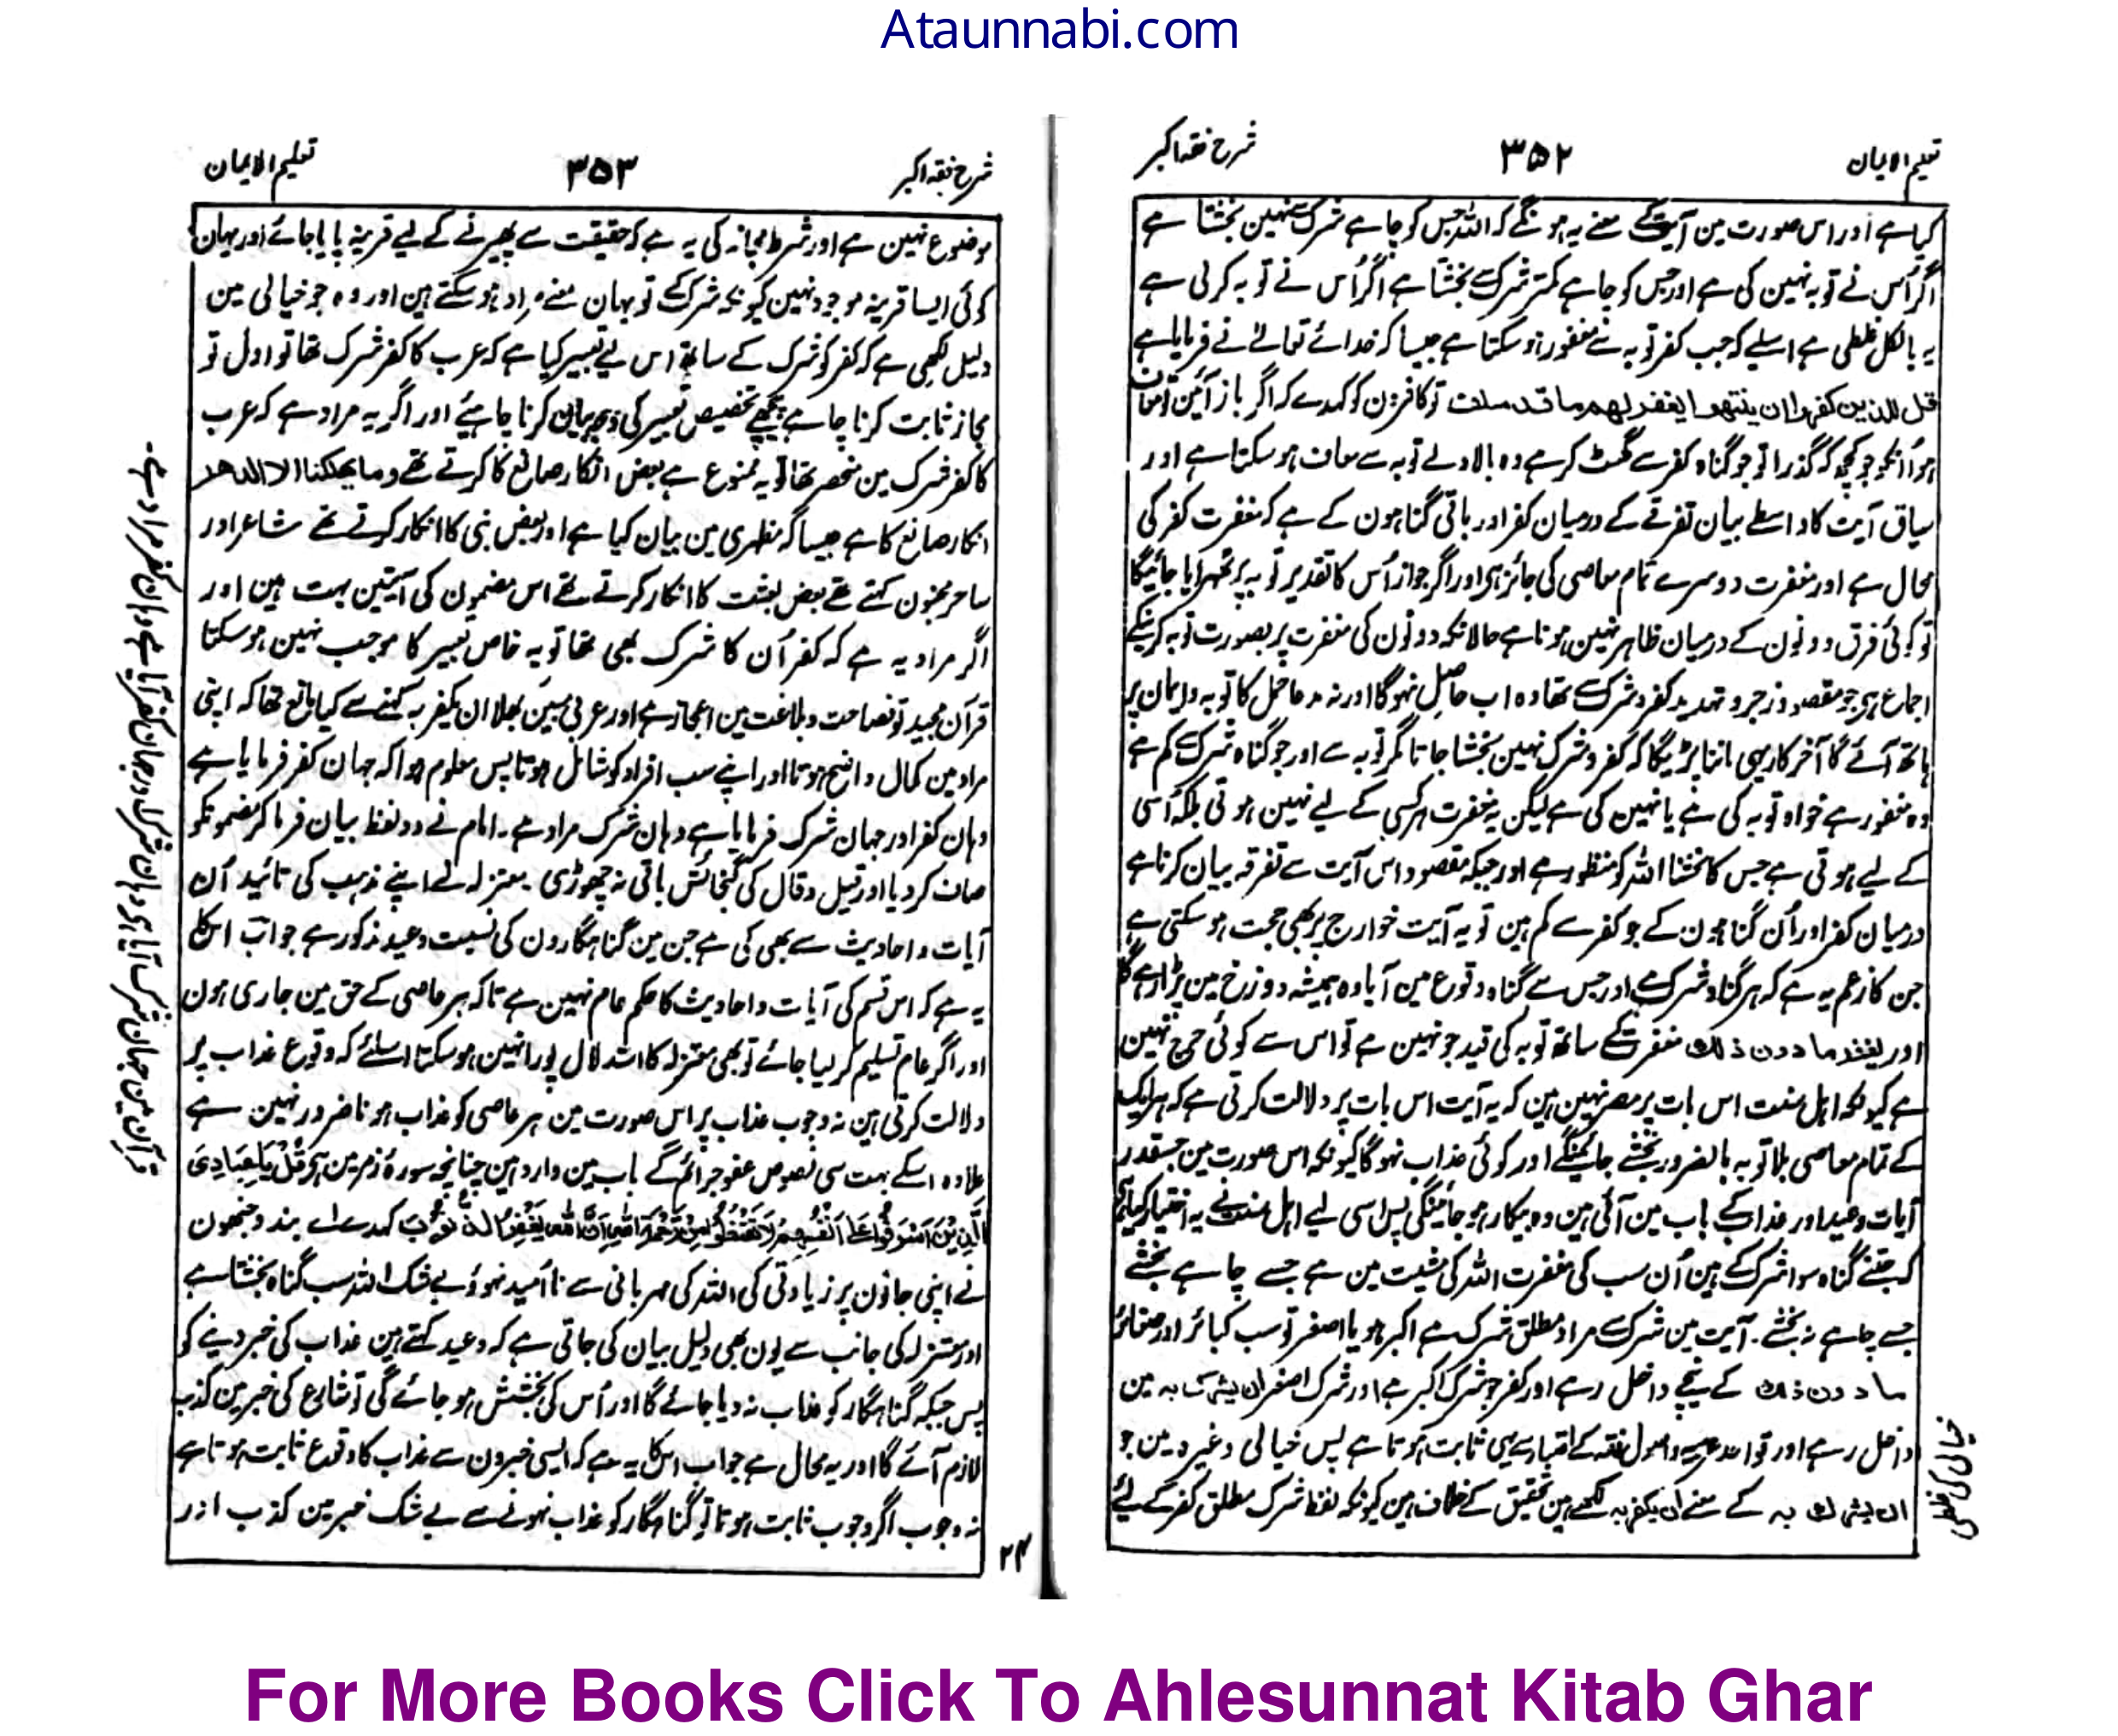 Ataunnabi.com
تعلیم الایمان
۳۵۲
شرح فقہ اکبر
کیا ہے اور اس صورت مین آیت کے معنے یہ ہونگے کہ اللہ جس کو چاہے شرک سے نہین بخشتا ہے
اگر اُس نے توبہ نہین کی ہے اور جس کو چاہے کمتر شرک سے بخشتا ہے اگر اُس نے توبہ کرلی ہے
یہ بالکل غلطی ہے اسلیے کہ جب کفر توبہ سے مغفور ہو سکتا ہے جیسا کہ خدائے تعالےٰ نے فرمایا ہے
قل للذین کفروا ان ینتھوا یغفر لھم ما قد سلف تو کافرون کو کہدے کہ اگر باز آئین تو معاف
ہو اُنکو جو کچھ کہ گذرا تو جو گناہ کفر سے گھٹ کر ہے وہ بالاولے توبہ سے معاف ہو سکتا ہے اور
سیاق آیت کا واسطے بیان تفرقے کے درمیان کفر اور باقی گناہون کے ہے کہ مغفرت کفر کی
محال ہے اور مغفرت دوسرے تمام معاصی کی جائز ہی اور اگر جواز اُس کا تقدیر توبہ پر ٹھہرایا جائیگا
تو کوئی فرق دونون کے درمیان ظاہر نہین ہوتا ہے حالانکہ دونون کی مغفرت پر بصورت توبہ کرنیکے
اجماع ہی جو مقصود زجر و تہدید کفر و شرک سے تھا وہ اب حاصل نہوگا اور نہ مدعا حمل کا توبہ و ایمان پر
ہاتھ آئے گا آخرکار یہی ماننا پڑیگا کہ کفر و شرک نہین بخشا جاتا مگر توبہ سے اور جو گناہ شرک سے کم ہے
وہ مغفور ہے خواہ توبہ کی ہے یا نہین کی ہے لیکن یہ مغفرت ہر کسی کے لیے نہین ہوتی بلکہ اُسی
کے لیے ہوتی ہے جس کا بخشنا اللہ کو منظور ہے اور جبکہ مقصود اس آیت سے تفرقہ بیان کرنا ہے
درمیان کفر اور اُن گناہون کے جو کفر سے کم ہین تو یہ آیت خوارج پر بھی حجت ہو سکتی ہے
جن کا زعم یہ ہے کہ ہر گناہ شرک ہے اور جس سے گناہ وقوع مین آیا وہ ہمیشہ دوزخ مین پڑا رہے گا
اور یغفر ما دون ذلک مغفرت کے ساتھ توبہ کی قید جو نہین ہے تو اس سے کوئی حرج نہین
ہے کیونکہ اہل سنت اس بات پر مصر نہین ہین کہ یہ آیت اس بات پر دلالت کرتی ہے کہ ہر ایک
کے تمام معاصی بلا توبہ بالضرور بخشے جائینگے اور کوئی عذاب نہوگا کیونکہ اس صورت مین جسقدر
آیات وعید اور عذاب کے باب مین آئی ہین وہ بیکار ہو جائینگی پس اسی لیے اہل سنت نے یہ اختیار کیا ہی
کہ جتنے گناہ سوا شرک کے ہین اُن سب کی مغفرت اللہ کی مشیت مین ہے جسے چاہے بخشے
جسے چاہے نہ بخشے۔ آیت مین شرک سے مراد مطلق شرک ہے اکبر ہو یا اصغر تو سب کبائر اور صغائر
ما دون ذلک کے نیچے داخل رہے اور کفر جو شرک اکبر ہے اور شرک اصغر ان یشرک بہ مین
داخل رہے اور قواعد عربیہ و اصول فقہ کے اعتبار سے یہی ثابت ہوتا ہے پس خیالی وغیرہ مین جو
ان یشرک بہ کے معنے ان یکفر بہ لکھے ہین تحقیق کے خلاف ہین کیونکہ لفظ شرک مطلق کفر کے لیے
خیالی کی غلطی
شرح فقہ اکبر
۳۵۳
تعلیم الایمان
موضوع نہین ہے اور شرط مجاز کی یہ ہے کہ حقیقت سے پھیرنے کے لیے قرینہ پایا جائے اور یہان
کوئی ایسا قرینہ موجود نہین کیونکہ شرک کے تو یہان معنے مراد ہو سکتے ہین اور وہ جو خیالی مین
دلیل لکھی ہے کہ کفر کو شرک کے ساتھ اس لیے تعبیر کیا ہے کہ عرب کا کفر شرک تھا تو اول تو
مجاز ثابت کرنا چاہیے پیچھے تخصیص تعبیر کی وجہ بیان کرنا چاہیے اور اگر یہ مراد ہے کہ عرب
کا کفر شرک مین منحصر تھا تو یہ ممنوع ہے بعض انکار صانع کا کرتے تھے وما یھلکنا الا الدھر
انکار صانع کا ہے جیسا کہ مظہری مین بیان کیا ہے اور بعض نبی کا انکار کرتے تھے شاعر اور
ساحر مجنون کہتے تھے بعض بعثت کا انکار کرتے تھے اس مضمون کی آیتین بہت ہین اور
اگر مراد یہ ہے کہ کفر اُن کا شرک بھی تھا تو یہ خاص تعبیر کا موجب نہین ہو سکتا
قرآن مجید تو فصاحت و بلاغت مین اعجاز ہے اور عربی مبین بھلا ان یکفر بہ کہنے سے کیا مانع تھا کہ اپنی
مراد مین کمال واضح ہوتا اور اپنے سب افراد کو شامل ہوتا پس معلوم ہوا کہ جہان کفر فرمایا ہے
وہان کفر اور جہان شرک فرمایا ہے وہان شرک مراد ہے۔ امام نے دو لفظ بیان فرما کر مضمونکو
صاف کردیا اور قیل و قال کی گنجائش باقی نہ چھوڑی۔ معتزلہ نے اپنے مذہب کی تائید اُن
آیات و احادیث سے بھی کی ہے جن مین گناہگارون کی نسبت وعید مذکور ہے جواب اسکا
یہ ہے کہ اس قسم کی آیات و احادیث کا حکم عام نہین ہے تاکہ ہر عاصی کے حق مین جاری ہون
اور اگر عام تسلیم کر لیا جائے تو بھی معتزلہ کا استدلال پورا نہین ہو سکتا اسلئے کہ وقوع عذاب پر
دلالت کرتی ہین نہ وجوب عذاب پر اس صورت مین ہر عاصی کو عذاب ہونا ضرور نہین ہے
علاوہ اسکے بہت سی نصوص عفو جرائم کے باب مین وارد ہین چنانچہ سورۂ زمر مین ہی قُلْ یَا عِبَادِیَ
الَّذِیْنَ اَسْرَفُوْا عَلٰٓی اَنْفُسِهِمْ لَا تَقْنَطُوْا مِنْ رَّحْمَةِ اللّٰهِ اِنَّ اللّٰهَ یَغْفِرُ الذُّنُوْبَ کہدے اے بندو جنھون
نے اپنی جانون پر زیادتی کی اللہ کی مہربانی سے نا اُمید نہوؤ بے شک اللہ سب گناہ بخشتا ہے
اور معتزلہ کی جانب سے یون بھی دلیل بیان کی جاتی ہے کہ وعید کہتے ہین عذاب کی خبر دینے کو
پس جبکہ گناہگار کو عذاب نہ دیا جائے گا اور اُس کی بخشش ہو جائے گی تو شارع کی خبر مین کذب
لازم آئے گا اور یہ محال ہے جواب اسکا یہ ہے کہ ایسی خبرون سے عذاب کا وقوع ثابت ہوتا ہے
نہ وجوب اگر وجوب ثابت ہوتا تو گناہگار کو عذاب نہونے سے بے شک خبر مین کذب اور
قرآن مین جہان شرک آیا ہی وہان شرک اور جہان کفر آیا ہے وہان کفر مراد ہے۔
For More Books Click To Ahlesunnat Kitab Ghar